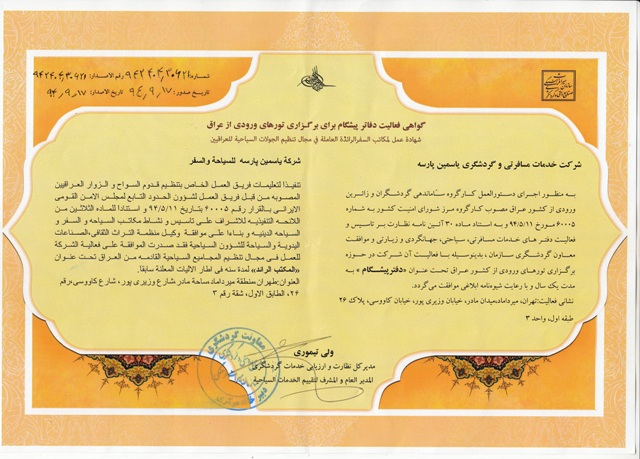 شماره: ۹۴۲۴۰۴٫۳۰۶۲۱ رقم الاصدار: ۹۴۲۴۰۴٫۳۰۶۲۱
تاریخ صدور: ۹۴٫۹٫۱۷ تاریخ الاصدار: ۹۴٫۹٫۱۷
گواهی فعالیت دفاتر پیشگام برای برگزاری تورهای ورودی از عراق
شهادة عمل لمکاتب السفر الرائدة العاملة في مجال تنظیم الجولات السیاحیة للعراقیین
شرکت خدمات مسافرتی و گردشگری یاسمین پارسه
به منظور اجرای دستورالعمل کارگروه ساماندهی گردشگران و زائرین
ورودی از کشور عراق مصوب کارگروه مرز شورای امنیت کشور به شماره
۶۰۰۰۵ مورخ ۹۴/۵/۱۱ و به استناد ماده ۳۰ آئین نامه نظارت بر تاسیس و
فعالیت دفتر های خدمات مسافرتی، سیاحتی، جهانگردی و زیارتی و موافقت
معاون گردشگری سازمان، بدینوسیله با فعالیت آن شرکت در حوزه
برگزاری تورهای ورودی از کشور عراق تحت عنوان «دفتر پیشگام» به
مدت یک سال و با رعایت شیوه نامه ابلاغی موافقت می گردد.
نشانی فعالیت:تهران، میرداماد،میدان مادر، خیابان وزیری پور، خیابان کاووسی، پلاک ۲۶
طبقه اول، واحد ۳
شرکة یاسمین پارسه للسیاحة والسفر
تنفیذا لتعلیمات فریق العمل الخاص بتنظیم قدوم السواح و الزوار العراقیین
المصوبه من قبل فریق العمل لشؤون الحدود التابع لمجلس الامن القومی
الایرانی بالقرار رقم ۶۰۰۰۵ بتاریخ ۹۴/۵/۱۱ و استنادا للماده الثلاثین من
اللائحه التنفیذیه للاشراف علی تاسیس و نشاط مکاتب السیاحه و السفر و
السیاحه الدینیه و بناءا علی موافقة وکیل منظمة التراث الثقافی،الصناعات
الیدویة والسیاحة للشؤون السیاحیة فقد صدرت الموافقه علی فعالیة الشرکة
للعمل فی مجال تنظیم المجامیع السیاحیة القادمه من العراق تحت عنوان
«المکتب الرائد» لمدة سنه فی اطار الالیات المعلنة سابقا.
العنوان:طهران منطقة میرداماد ساحة مادر شارع وزیری پور، شارع کاووسی،رقم
۲۶، الطابق الاول، شقة رقم ۳
ولی تیموری
مدیر کل نظارت و ارزیابی خدمات گردشگری
المدیر العام و المشرف لتقییم الخدمات السیاحیة
معاونت گردشگری